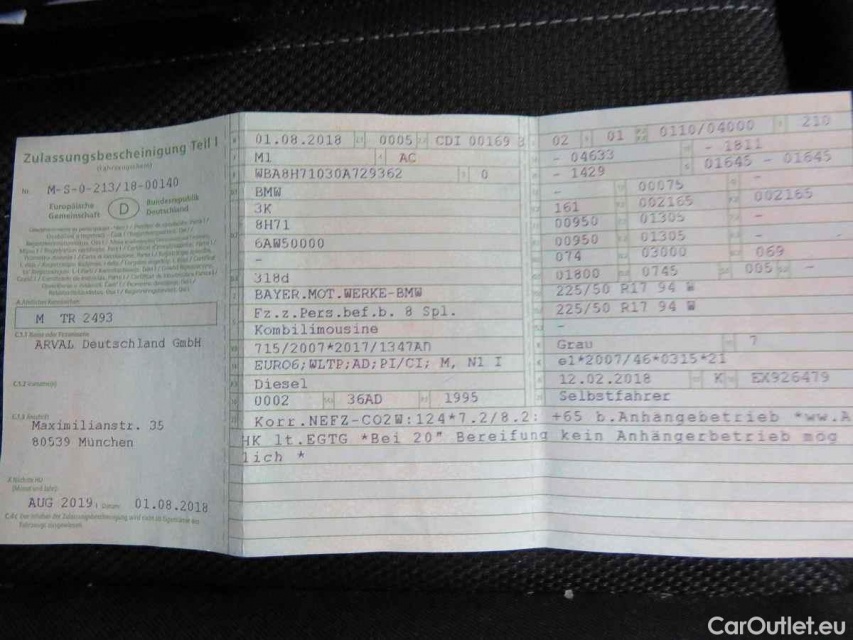 Zulassungsbescheinigung Teil I
(Fahrzeugschein)
Nr. M-S-0-213/18-00140
Europäische Gemeinschaft
D
Bundesrepublik Deutschland
M TR 2493
ARVAL Deutschland GmbH
Maximilianstr. 35
80539 München
AUG 2019 01.08.2018
01.08.2018 0005 CDI 00169 3
M1 AC
WBA8H71030A729362 0
BMW
3K
8H71
6AW50000
-
318d
BAYER.MOT.WERKE-BMW
Fz.z.Pers.bef.b. 8 Spl.
Kombilimousine
715/2007*2017/1347AD
EURO6;WLTP;AD;PI/CI; M, N1 I
Diesel
0002 36AD 1995
02 01 0110/04000 210
- 04633 - 1811
- 1429 01645 - 01645
00075 -
161 002165 002165
00950 01305 -
00950 01305 -
074 03000 069
01800 0745 005 -
225/50 R17 94 W
225/50 R17 94 W
-
Grau 7
e1*2007/46*0315*21
12.02.2018 K EX926479
Selbstfahrer
Korr.NEFZ-CO2W:124*7.2/8.2: +65 b.Anhängebetrieb *ww.A
HK lt.EGTG *Bei 20" Bereifung kein Anhängerbetrieb mög
lich *
CarOutlet.eu